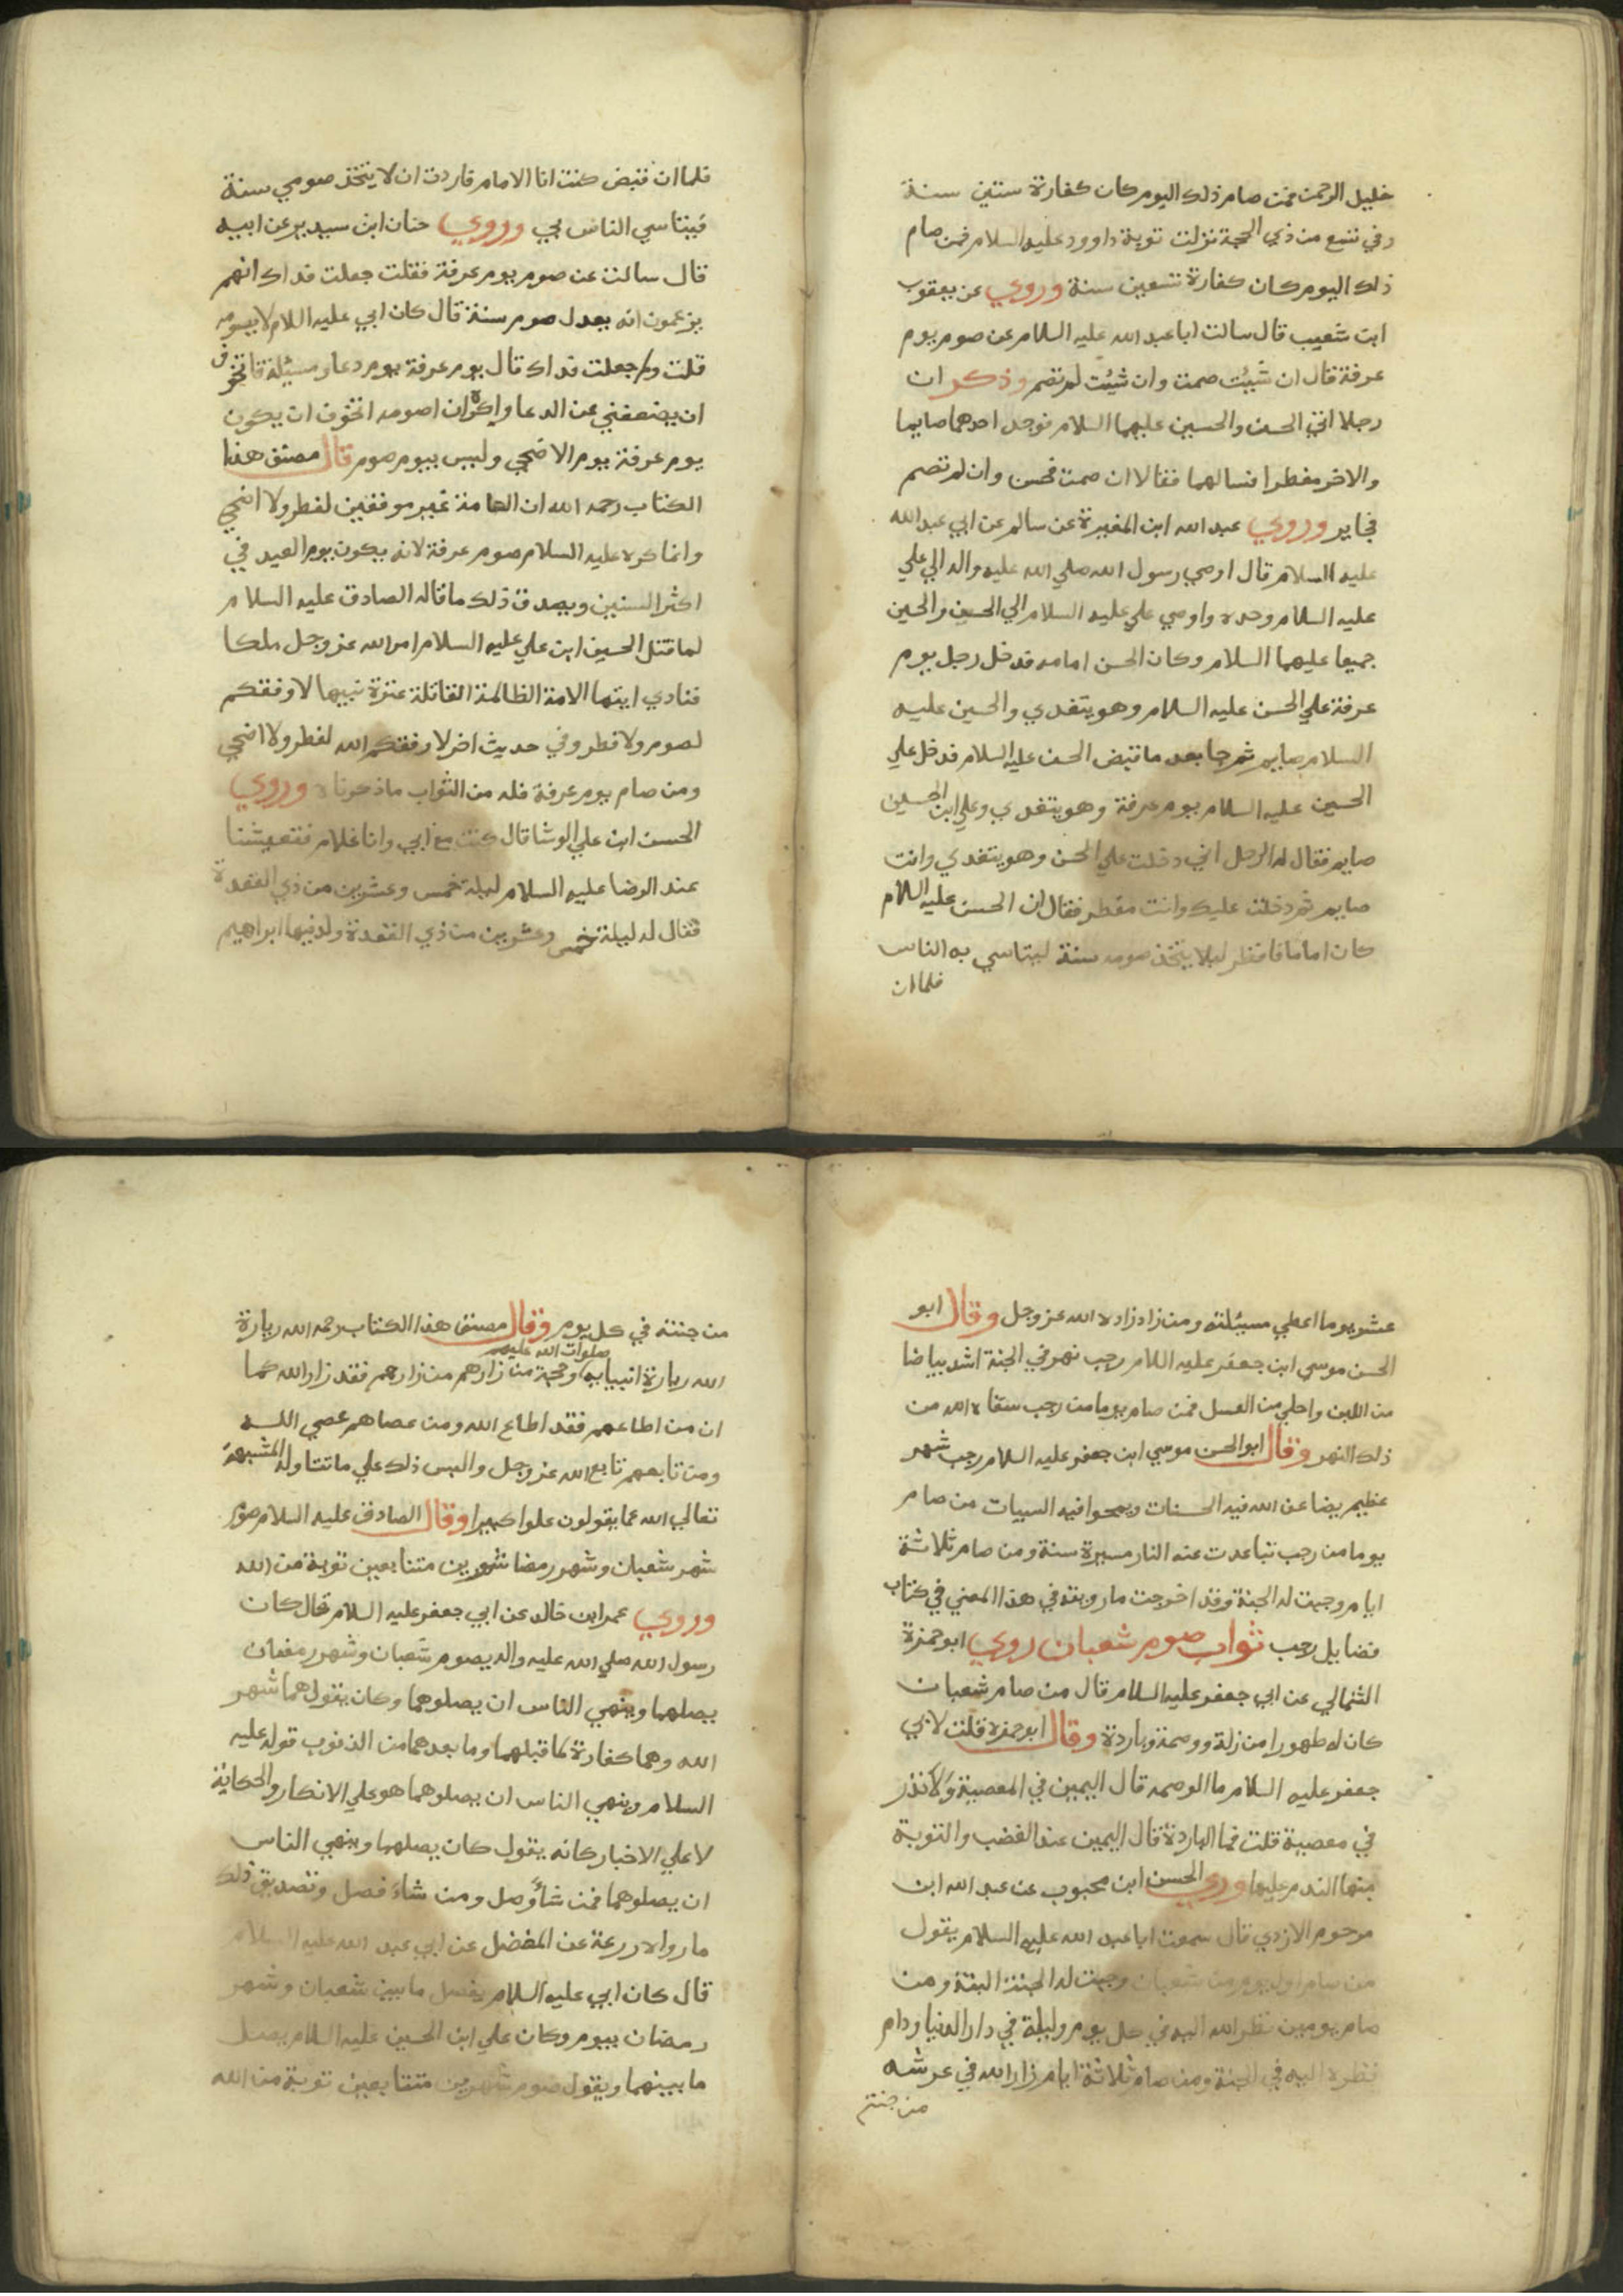 خليل الرحمن فمن صام ذلك اليوم كان كفارة ستين سنة
وفي تسع من ذي الحجة نزلت توبة داوود عليه السلام فمن صام
ذلك اليوم كان كفارة تسعين سنة وروي عن يعقوب
ابن شعيب قال سالت ابا عبد الله عليه السلام عن صوم يوم
عرفة قال ان شيئت صمت وان شيئت لم تصم وذكر ان
رجلا اتي الحسن والحسين عليهما السلام فوجد احدهما صايما
والاخر مفطرا فسالهما فقالا ان صمت فحسن وان لم تصم
فجايز وروي عبد الله ابن المغيرة عن سالم عن ابي عبد الله
عليه السلام قال اوصي رسول الله صلي الله عليه واله الي علي
عليه السلام وحده واوصي علي عليه السلام الي الحسن والحسين
جميعا عليهما السلام وكان الحسن امامه فدخل رجل يوم
عرفة علي الحسن عليه السلام وهو يتغدي والحسين عليه
السلام صايم ثم جا بعد ما قبض الحسن عليه السلام فدخل علي
الحسين عليه السلام يوم عرفة وهو يتغدي وعلي ابن الحسين
صايم فقال له الرجل اني دخلت علي الحسن وهو يتغدي وانت
صايم ثم دخلت عليك وانت مفطر فقال ان الحسن عليه السلام
كان اماما فافطر ليلا يتخذ صومه سنة ليتاسي به الناس
فلما ان
فلما ان قبض كنت انا الامام فاردت ان لا يتخذ صومي سنة
فيتاسي الناس بي وروي حنان ابن سيدير عن ابيه
قال سالت عن صوم يوم عرفة فقلت جعلت فداك انهم
يزعمون انه يعدل صوم سنة قال كان ابي عليه السلام لا يصومه
قلت ولم جعلت فداك قال يوم عرفة يوم دعا ومسيئلة فاتخوف
ان يضعفني عن الدعا واكره ان اصومه اتخوف ان يكون
يوم عرفة يوم الاضحي وليس بيوم صوم قال مصنف هذا
الكتاب رحمه الله ان العامة غير موفقين لفطر ولا اضحي
وانما كره عليه السلام صوم عرفة لانه يكون يوم العيد في
اكثر السنين ويصدق ذلك ما قاله الصادق عليه السلام
لما قتل الحسين ابن علي عليه السلام امر الله عز وجل ملكا
فنادي ايتها الامة الظالمة القاتلة عترة نبيها لا وفقكم
لصوم ولا فطر وفي حديث اخر لا وفقكم الله لفطر ولا اضحي
ومن صام يوم عرفة فله من الثواب ما ذكرناه وروي
الحسن ابن علي الوشا قال كنت مع ابي وانا غلام فتعيشنا
عند الرضا عليه السلام ليلة خمس وعشرين من ذي القعدة
فقال له ليلة خمس وعشرين من ذي القعدة ولد فيها ابراهيم
عشر يوما اعطي مسيئلته ومن زاد زاده الله عز وجل وقال ابو
الحسن موسي ابن جعفر عليه السلام رجب نهر في الجنة اشد بياضا
من اللبن واحلي من العسل فمن صام يوما من رجب سقاه الله من
ذلك النهر وقال ابو الحسن موسي ابن جعفر عليه السلام رجب شهر
عظيم يضاعف الله فيه الحسنات ويمحوا فيه السيات من صام
يوما من رجب تباعدت عنه النار مسيرة سنة ومن صام ثلاثة
ايام وجبت له الجنة وقد اخرجت ما رويته في هذا المعني في كتاب
فضايل رجب ثواب صوم شعبان روي ابو حمزة
الثمالي عن ابي جعفر عليه السلام قال من صام شعبان
كان له طهورا من زلة ووصمة وباردة وقال ابو حمزة قلت لابي
جعفر عليه السلام ما الوصمه قال اليمين في المعصية ولا نذر
في معصية قلت فما الباردة قال اليمين عند الغضب والتوبة
منها الندم عليها وروي الحسن ابن محبوب عن عبد الله ابن
مرحوم الازدي قال سمعت ابا عبد الله عليه السلام يقول
من صام اول يوم من شعبان وجبت له الجنة البتة ومن
صام يومين نظر الله اليه في كل يوم وليلة في دار الدنيا ودام
نظره اليه في الجنة ومن صام ثلاثة ايام زار الله في عرشه
من جنته
من جنته في كل يوم وقال مصنف هذا الكتاب رحمه الله زيارة
صلوات الله عليهم
الله زيارة انبيايه وحججه من زارهم من زارهم فقد زار الله كما
ان من اطاعهم فقد اطاع الله ومن عصاهم عصي الله
ومن تابعهم تابع الله عز وجل وليس ذلك علي ما تتاوله المشبهة
تعالي الله عما يقولون علوا كبيرا وقال الصادق عليه السلام صوم
شهر شعبان وشهر رمضا شهرين متتابعين توبة من الله
وروي عمر ابن خالد عن ابي جعفر عليه السلام قال كان
رسول الله صلي الله عليه واله يصوم شعبان وشهر رمضان
يصلهما وينهي الناس ان يصلوهما وكان يقول هما شهر
الله وهما كفارة لما قبلهما وما بعدهما من الذنوب قوله عليه
السلام وينهي الناس ان يصلوهما هو علي الانكار والحكاية
لا علي الاخبار كانه يقول كان يصلهما وينهي الناس
ان يصلوهما فمن شاء وصل ومن شاء فصل وتصديق ذلك
ما رواه زرعة عن المفضل عن ابي عبد الله عليه السلام
قال كان ابي عليه السلام يفصل ما بين شعبان وشهر
رمضان بيوم وكان علي ابن الحسين عليه السلام يصل
ما بينهما ويقول صوم شهرين متتابعين توبة من الله